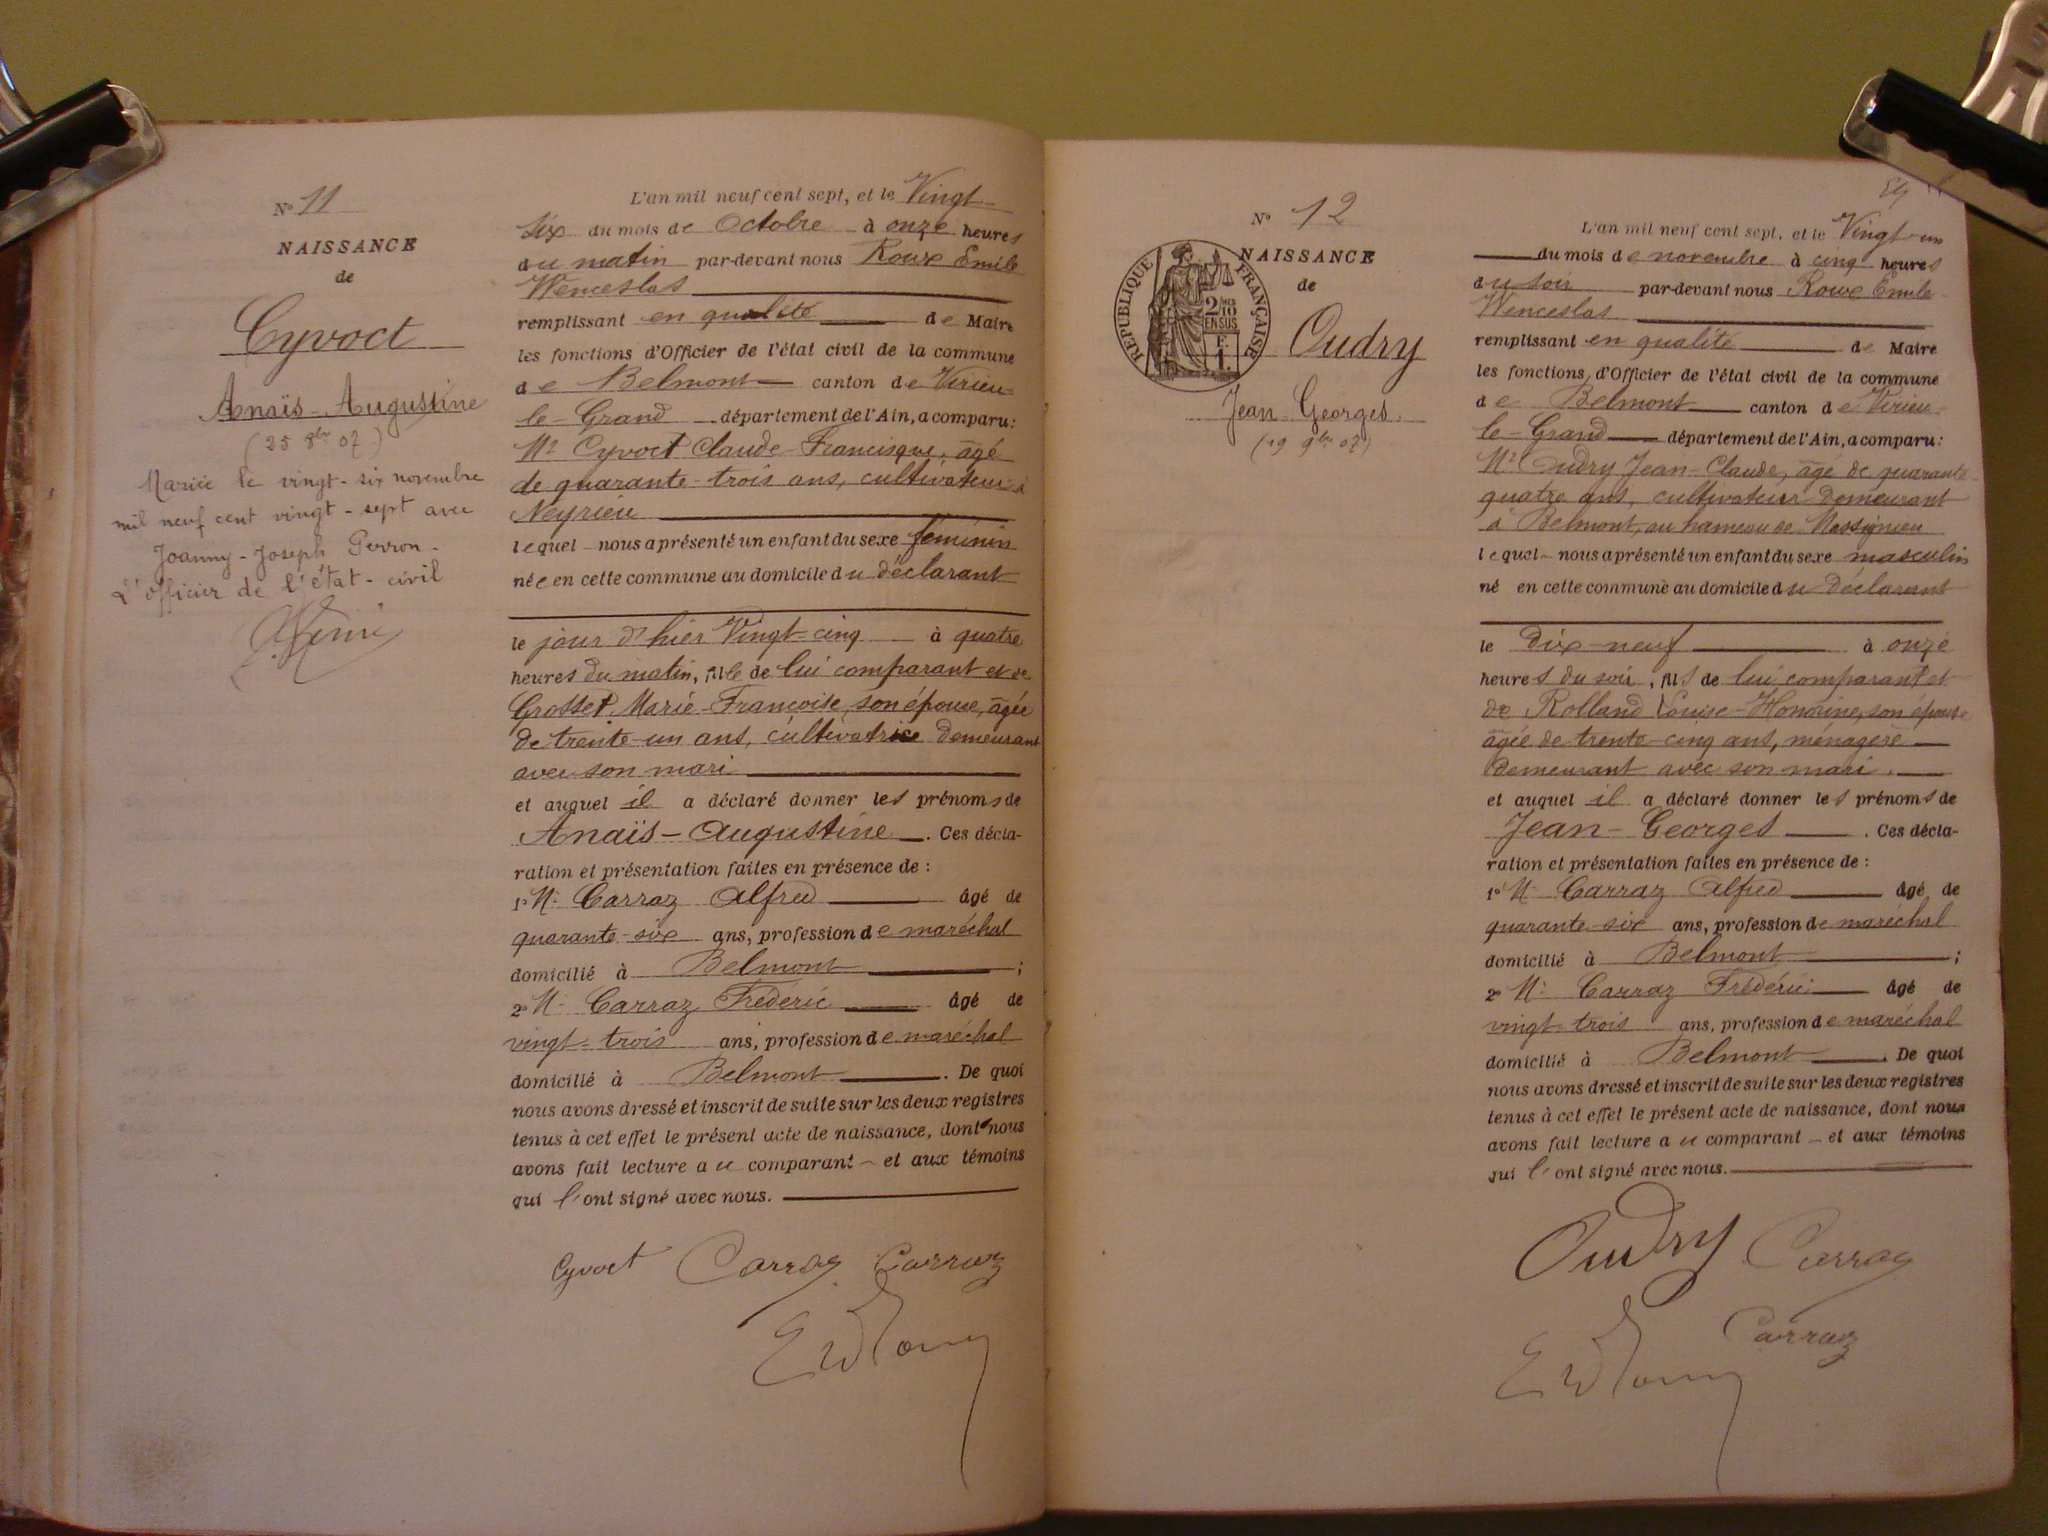 N° 11
NAISSANCE
de
Cyvoct
Anaïs-Augustine
(25 8bre 07)
Mariée le vingt-six novembre
mil neuf cent vingt-sept avec
Joanny-Joseph Perron.
L'officier de l'état-civil
L'an mil neuf cent sept, et le Vingt-
six du mois de Octobre à onze heures
du matin par-devant nous Roux Emile
Wenceslas
remplissant en qualité de Maire
les fonctions d'Officier de l'état civil de la commune
de Belmont canton de Virieu-
le-Grand département de l'Ain, a comparu:
Mr Cyvoct Claude-Francisque, âgé
de quarante-trois ans, cultivateur à
Neyrieu
lequel nous a présenté un enfant du sexe féminin
née en cette commune au domicile du déclarant
le jour d'hier Vingt-cinq à quatre
heures du matin, fille de lui comparant et de
Grosset Marie-Françoise, son épouse, âgée
de trente-un ans, cultivatrice demeurant
avec son mari
et auquel il a déclaré donner les prénoms de
Anaïs-Augustine. Ces décla-
ration et présentation faites en présence de :
1° M. Carraz Alfred âgé de
quarante-six ans, profession de maréchal
domicilié à Belmont ;
2° M. Carraz Frédéric âgé de
vingt-trois ans, profession de maréchal
domicilié à Belmont. De quoi
nous avons dressé et inscrit de suite sur les deux registres
tenus à cet effet le présent acte de naissance, dont nous
avons fait lecture au comparant et aux témoins
qui l'ont signé avec nous.
Cyvoct Carraz Carraz
N° 12
NAISSANCE
de
RÉPUBLIQUE FRANÇAISE
2/10
EN SUS
F.
1.
Oudry
Jean-Georges.
(19 9bre 07)
L'an mil neuf cent sept, et le Vingt-un
du mois de novembre à cinq heures
du soir par-devant nous Roux Emile
Wenceslas
remplissant en qualité de Maire
les fonctions d'Officier de l'état civil de la commune
de Belmont canton de Virieu-
le-Grand département de l'Ain, a comparu:
Mr Oudry Jean-Claude, âgé de quarante-
quatre ans, cultivateur demeurant
à Belmont, au hameau de Massignieu
lequel nous a présenté un enfant du sexe masculin
né en cette commune au domicile du déclarant
le dix-neuf à onze
heures du soir, fils de lui comparant et
de Rolland Louise-Honorine, son épouse
âgée de trente-cinq ans, ménagère
demeurant avec son mari.
et auquel il a déclaré donner les prénoms de
Jean-Georges. Ces décla-
ration et présentation faites en présence de :
1° M. Carraz Alfred âgé de
quarante-six ans, profession de maréchal
domicilié à Belmont ;
2° M. Carraz Frédéric âgé de
vingt-trois ans, profession de maréchal
domicilié à Belmont. De quoi
nous avons dressé et inscrit de suite sur les deux registres
tenus à cet effet le présent acte de naissance, dont nous
avons fait lecture au comparant et aux témoins
qui l'ont signé avec nous.
Oudry Carraz
Carraz